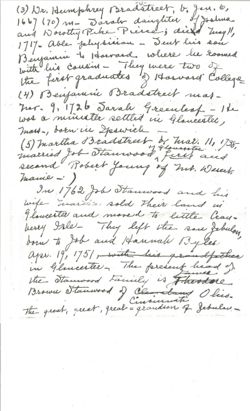 (3) Dr. Humphrey Bradstreet, b. Jan. 6,
1667 (70) m - Sarah daughter of Joshua
and Dorothy Pike Pierce; died May 11,
1717 - Able physician - Sent his son
Benjamin to Harvard, where he roomed
with his cousin - They were two of
the first graduates of Harvard College
(4) Benjamin Bradstreet mar-
Nov. 9, 1726 Sarah Greenleaf - He
was a minister settled in Gloucester,
Mass, born in Ipswich -
(5) Martha Bradstreet b. Mar. 11,
married Job Stanwood of Gloucester first and
second - Robert Young of Mt. Desert
Maine - )
In 1762 Job Stanwood and his
wife Martha sold their land in
Gloucester and moved to little Cran-
berry Isle - They left the son Zebulon,
born to Job and Hannah Byles
Apr. 19, 1751 with his grandfather
in Gloucester - The present head of
the Stanwood Family is James Theodore
Brown Stanwood of Cleveland Cincinnati Ohio.
the great, great, great-grandson of Zebulon -